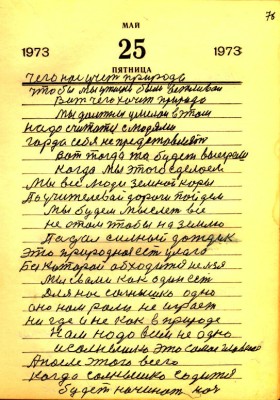 75
МАЙ
1973 25 1973
ПЯТНИЦА
Чего ни учет природе
чтобы мы утицы были
Вит чего хочит природо
Мы должны умелои в том
надо считать с людями
гарда себя не представлять
вот тогда та будет выеграли
когда мы этого сделоем
Мы все люди земной коры
По учителевай дороги пойдем
Мы будем мыслет все
не отом чтобы на землю
Падал сильный дождик
Это природная ест улаго
Бе каторай обходится нельзя
Мы свами как один ест
Для нас солнышко одно
оно нам роли не играет
ни где и не как в природе
Нам надо всем не одно
и солнышко это самое
А после этого всего
когда солнышко садится
будет начинат ноч